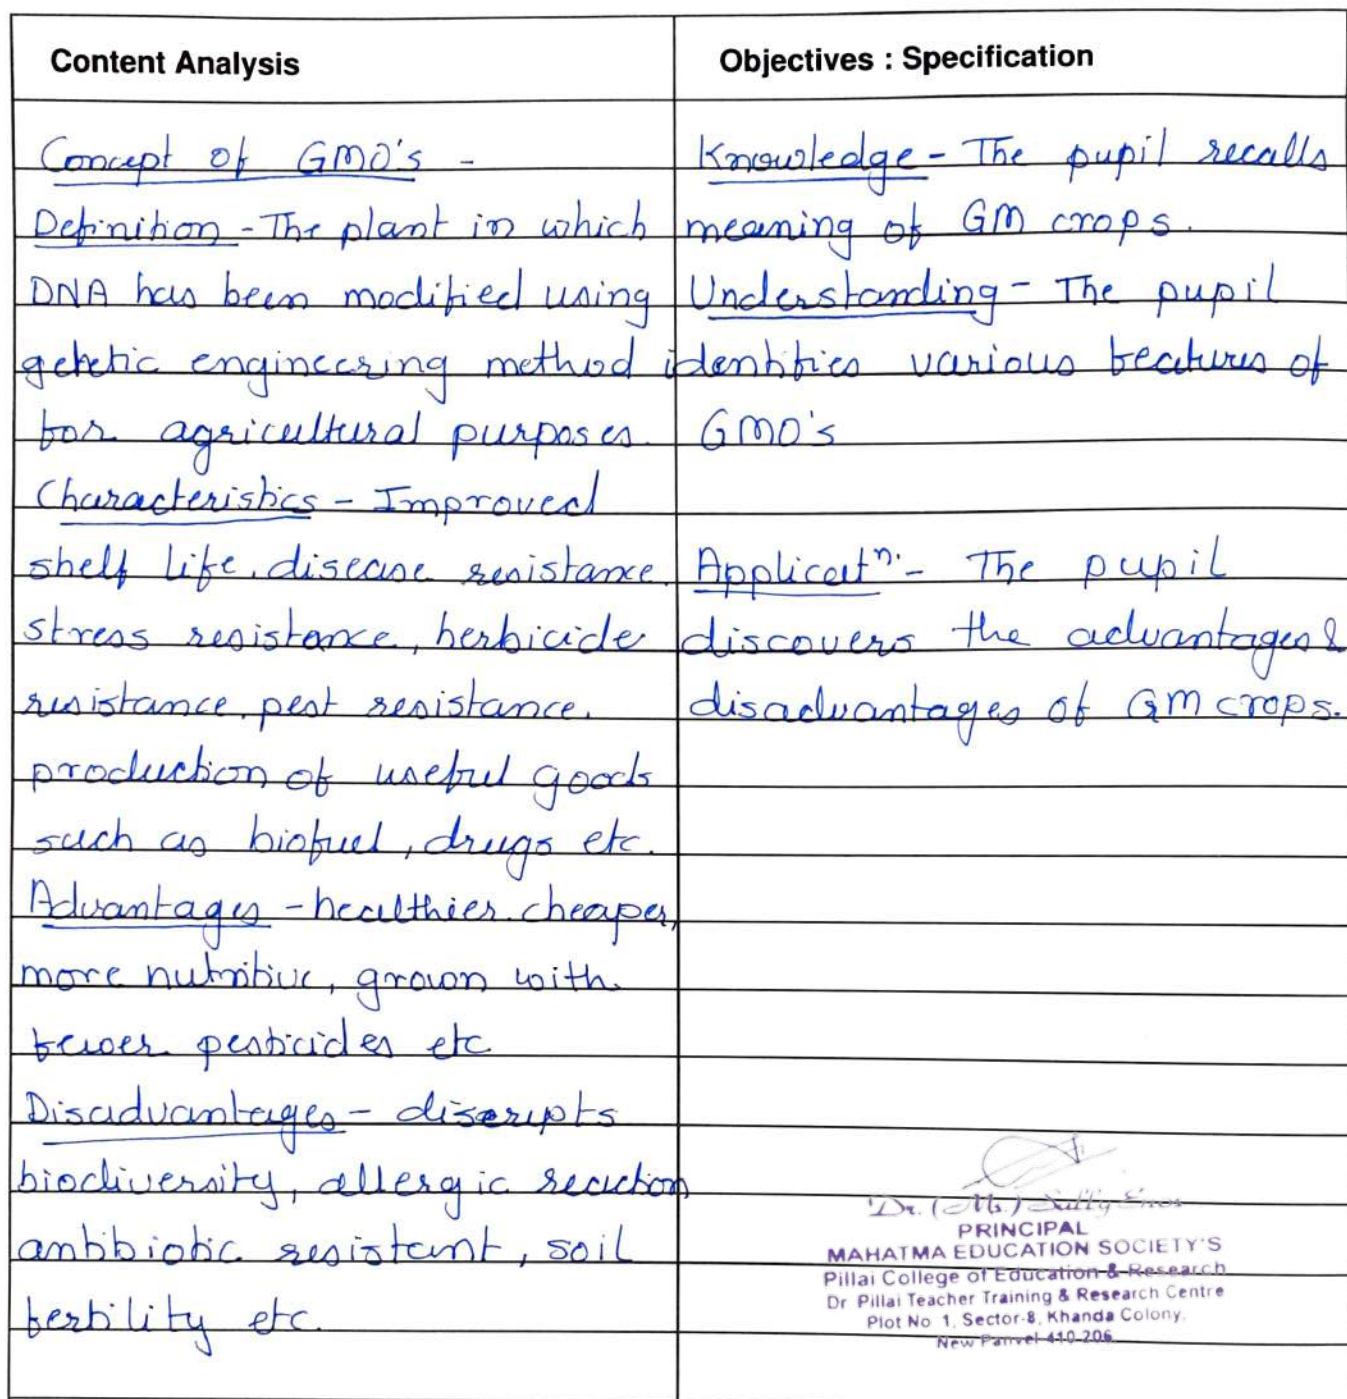 Content Analysis
Concept of GMO's -
Definition - The plant in which
DNA has been modified using
genetic engineering method
for agricultural purposes.
Characteristics - Improved
shelf life, disease resistance,
stress resistance, herbicide
resistance, pest resistance,
production of useful goods
such as biofuel, drugs etc.
Advantages - healthier, cheaper,
more nutritive, grown with
fewer pesticides etc
Disadvantages - diserupts
biodiversity, allergic reaction
antibiotic resistant, soil
fertility etc.
Objectives : Specification
Knowledge - The pupil recalls
meaning of GM crops.
Understanding - The pupil
identifies various features of
GMO's
Applicatn. - The pupil
discovers the advantages &
disadvantages of GM crops.
Dr. (Ms.) Sally Enos
PRINCIPAL
MAHATMA EDUCATION SOCIETY'S
Pillai College of Education & Research
Dr Pillai Teacher Training & Research Centre
Plot No 1, Sector-8, Khanda Colony,
New Panvel-410 206